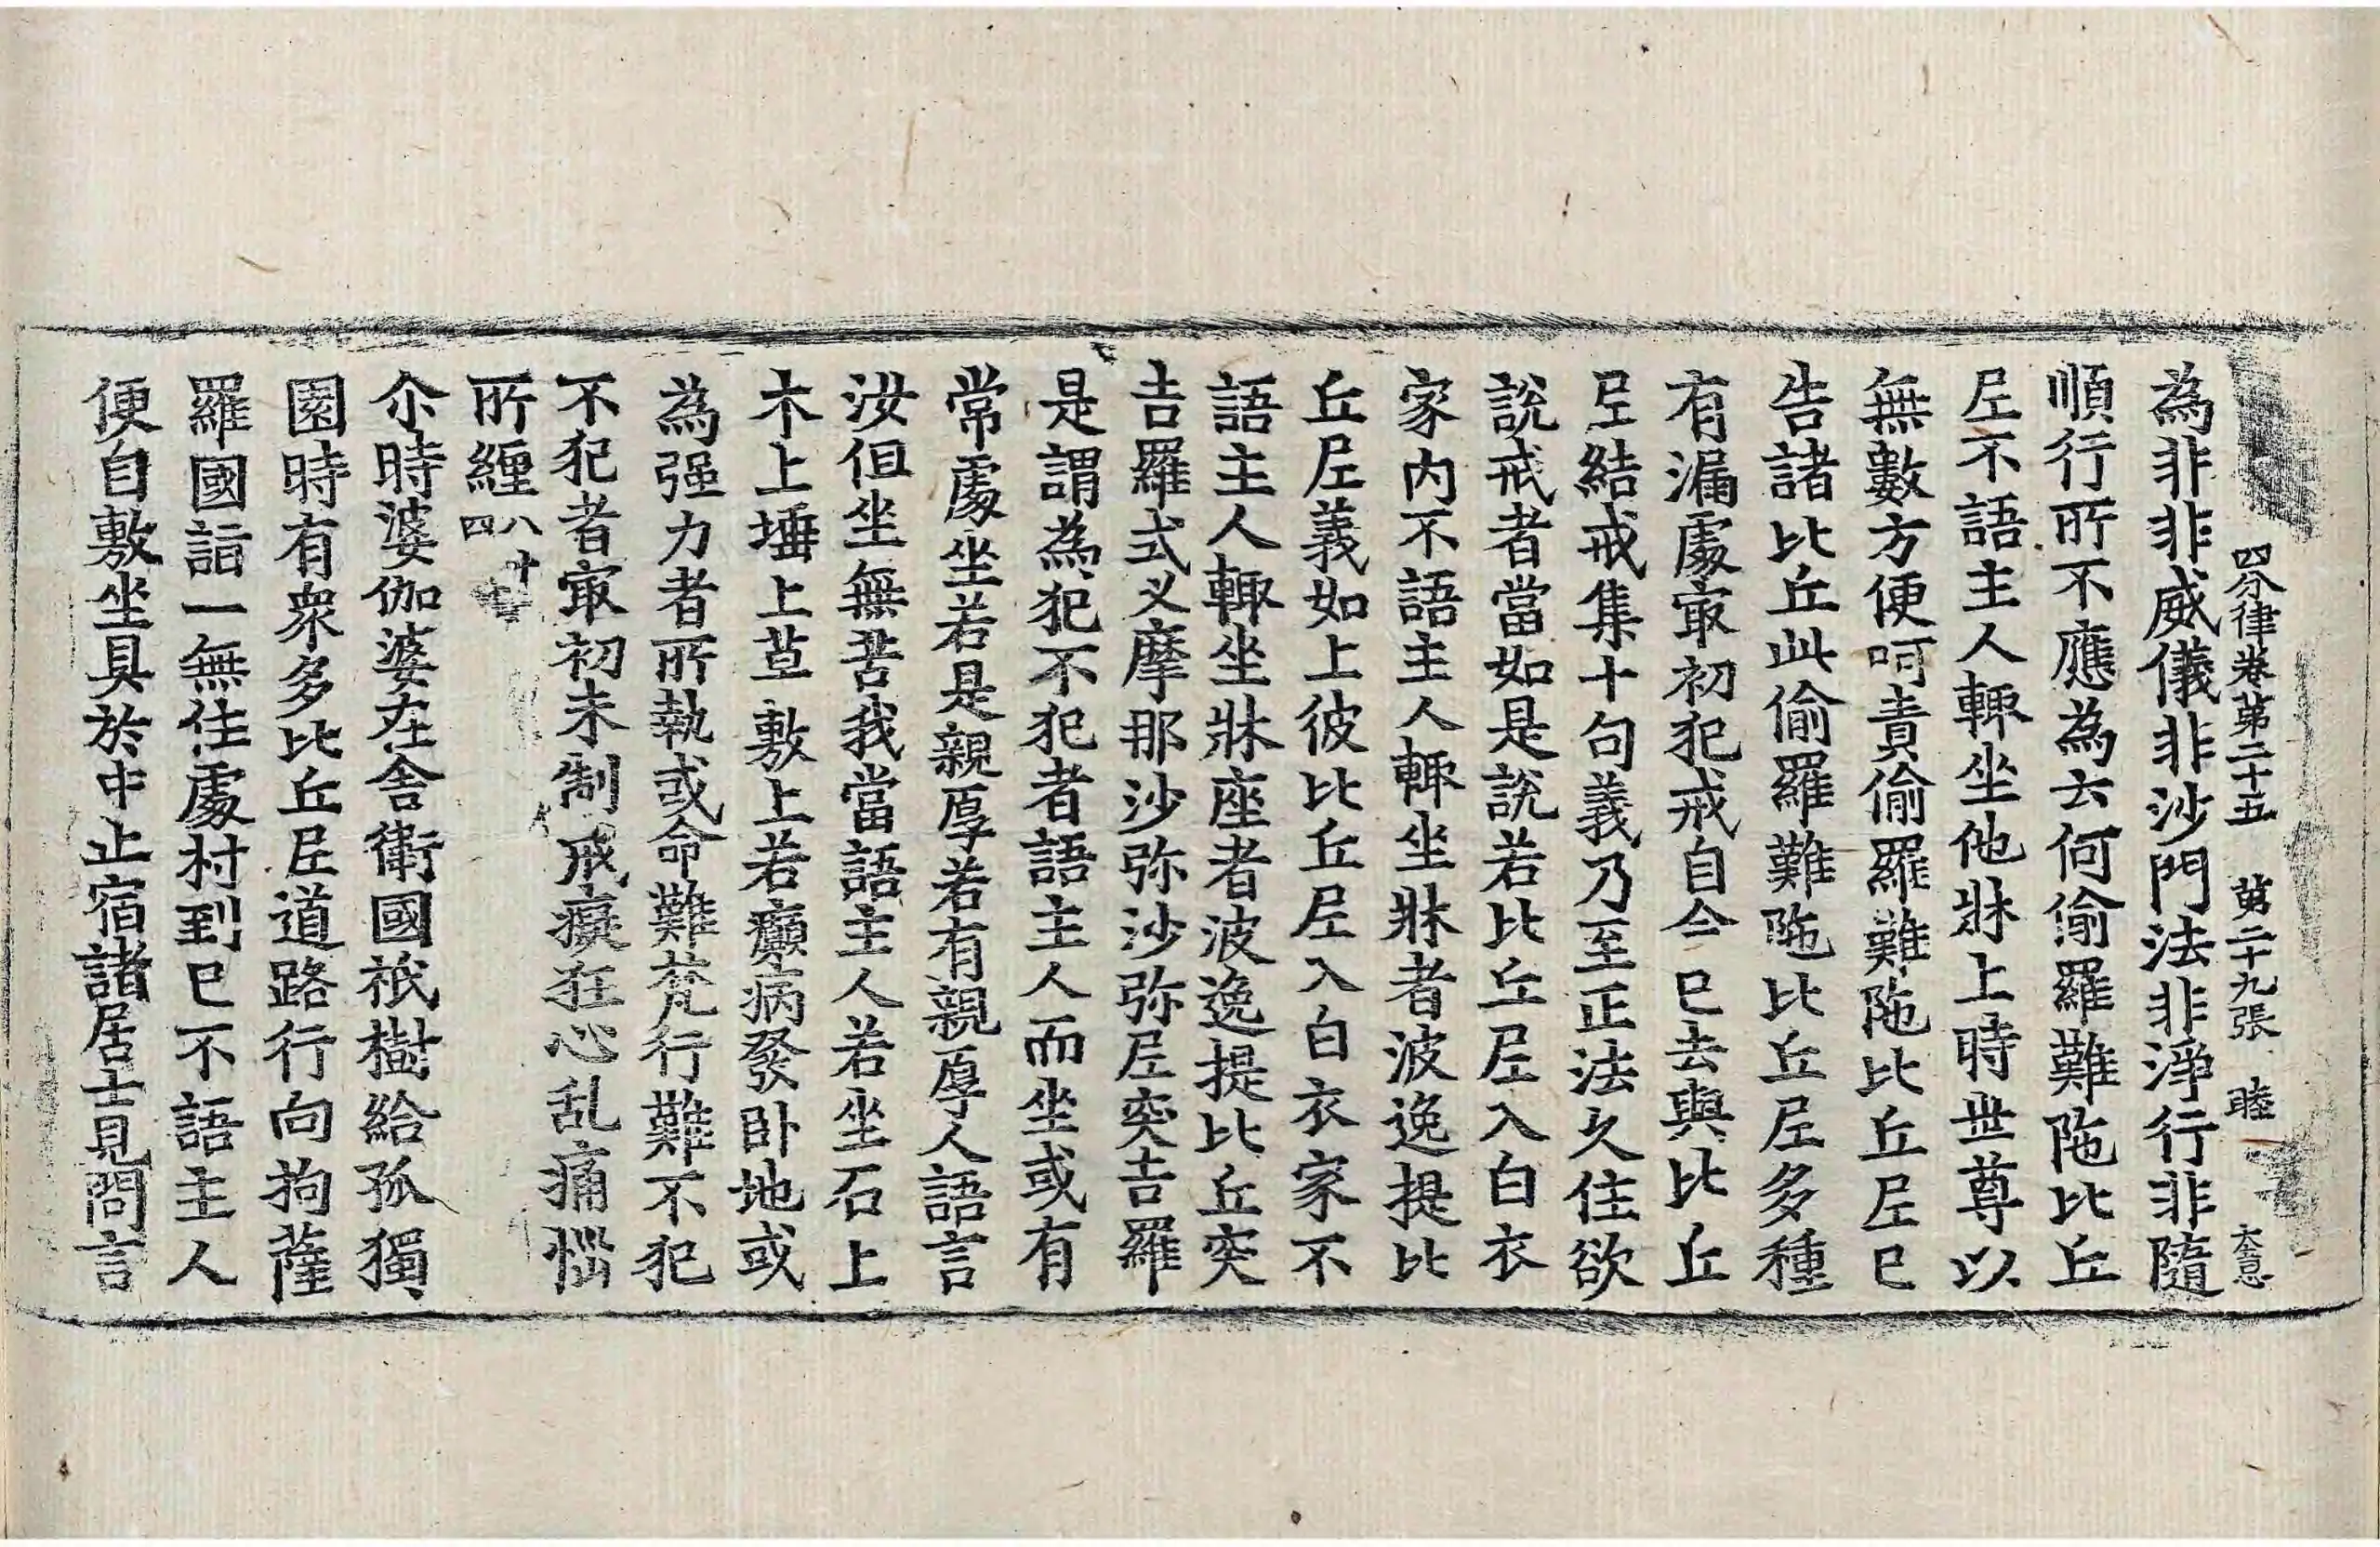 四分律卷第二十五 第二十九張 睦 大意
為非非威儀非沙門法非淨行非隨
順行所不應為云何偷羅難陁比丘
尼不語主人輒坐他牀上時世尊以
無數方便呵責偷羅難陁比丘尼已
告諸比丘此偷羅難陁比丘尼多種
有漏處㝡初犯戒自今已去與比丘
尼結戒集十句義乃至正法久住欲
說戒者當如是說若比丘尼入白衣
家内不語主人輒坐牀者波逸提比
丘尼義如上彼比丘尼入白衣家不
語主人輒坐牀座者波逸提比丘突
吉羅式叉摩那沙弥沙弥尼突吉羅
是謂為犯不犯者語主人而坐或有
常處坐若是親厚若有親厚人語言
汝但坐無苦我當語主人若坐石上
木上埵上草敷上若癲病發卧地或
為强力者所執或命難梵行難不犯
不犯者㝡初未制戒癡狂心乱痛惱
所纏八十四
尒時婆伽婆在舍衛國祇樹給孤獨
園時有衆多比丘尼道路行向拘薩
羅國詣一無住處村到已不語主人
便自敷坐具於中止宿諸居士見問言